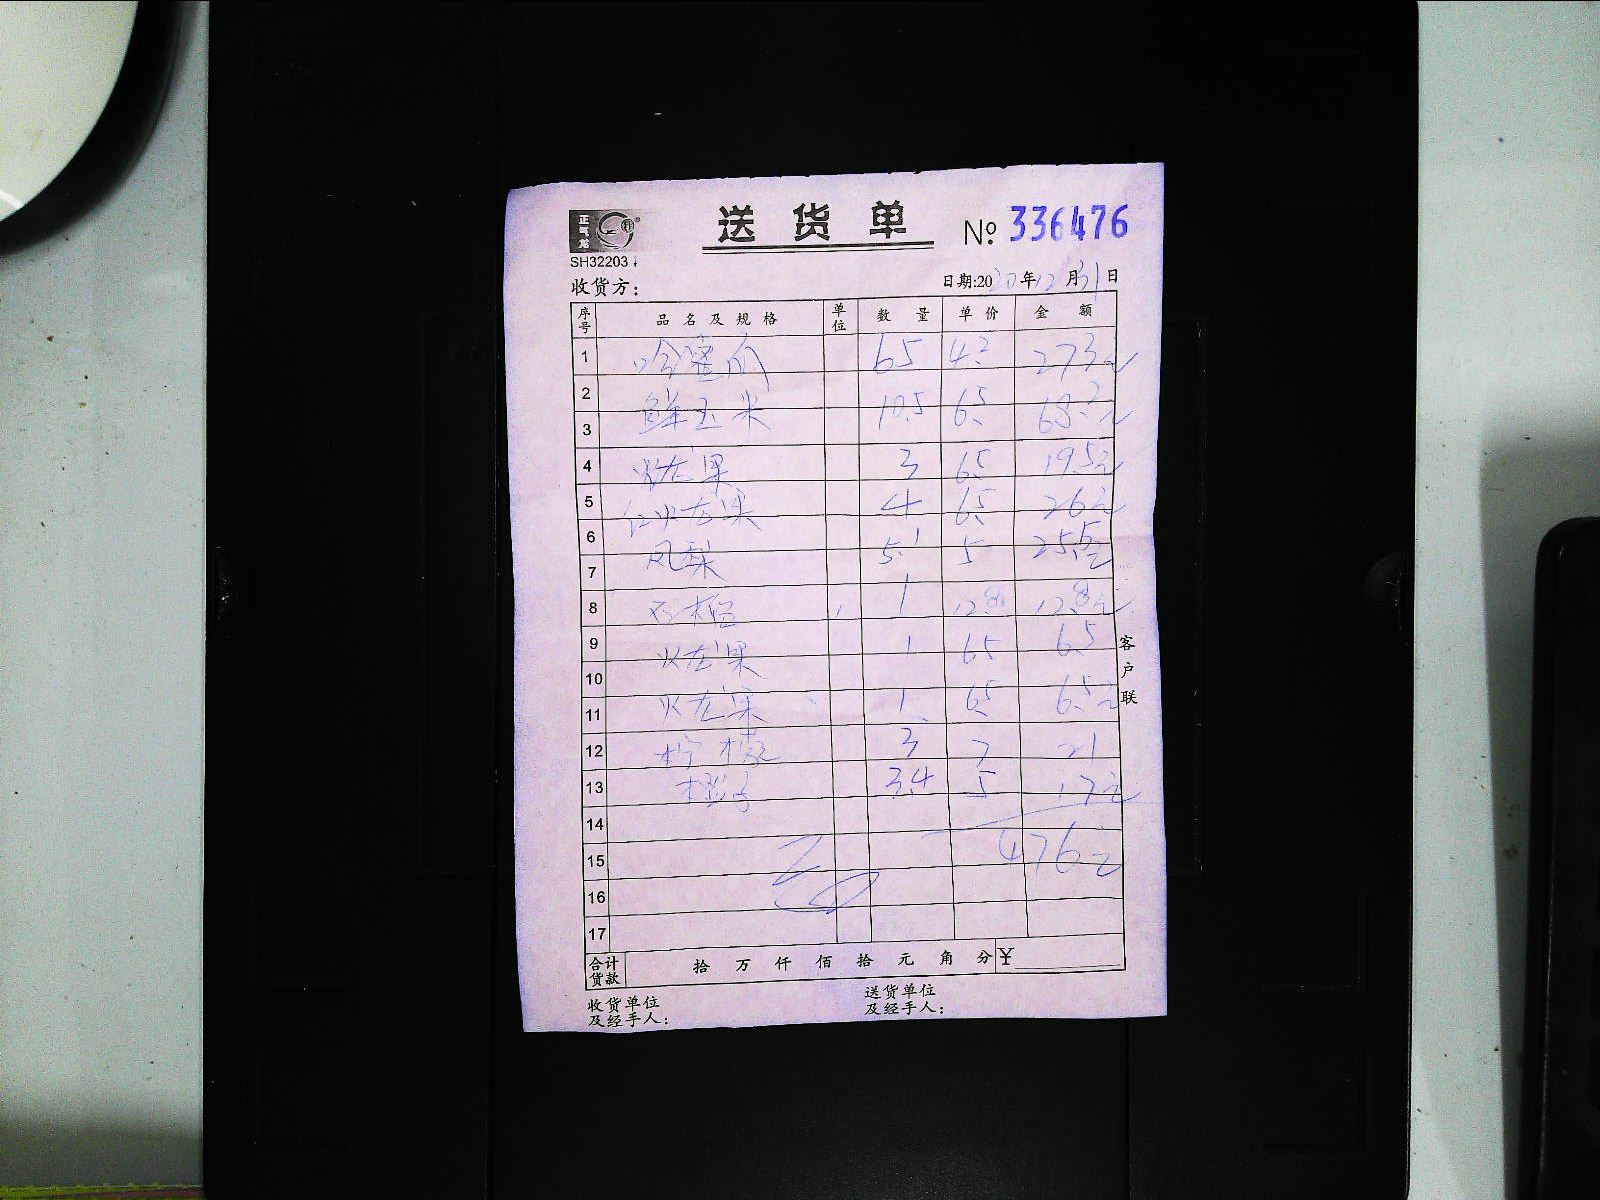 正气龙
SH32203
送货单
№ 336476
收货方：
日期:2020年12月31日
序号 品名及规格 单位 数量 单价 金额
1 哈蜜瓜 65 4.2 273元
2
鲜玉米 10.5 6.5 68.2元
3
4 火龙果 3 6.5 19.5元
5
红火龙果 4 6.5 26元
6
凤梨 5.1 5 25.5元
7
8 石榴 1 12.8 12.8元
9
火龙果 1 6.5 6.5
10
11 火龙果 1 6.5 6.5元
12 柠檬 3 7 21
13 橙子 3.4 5 17元
14
15 476元
16
17
合计货款 拾 万 仟 佰 拾 元 角 分 ¥
收货单位
及经手人：
送货单位
及经手人：
客户联